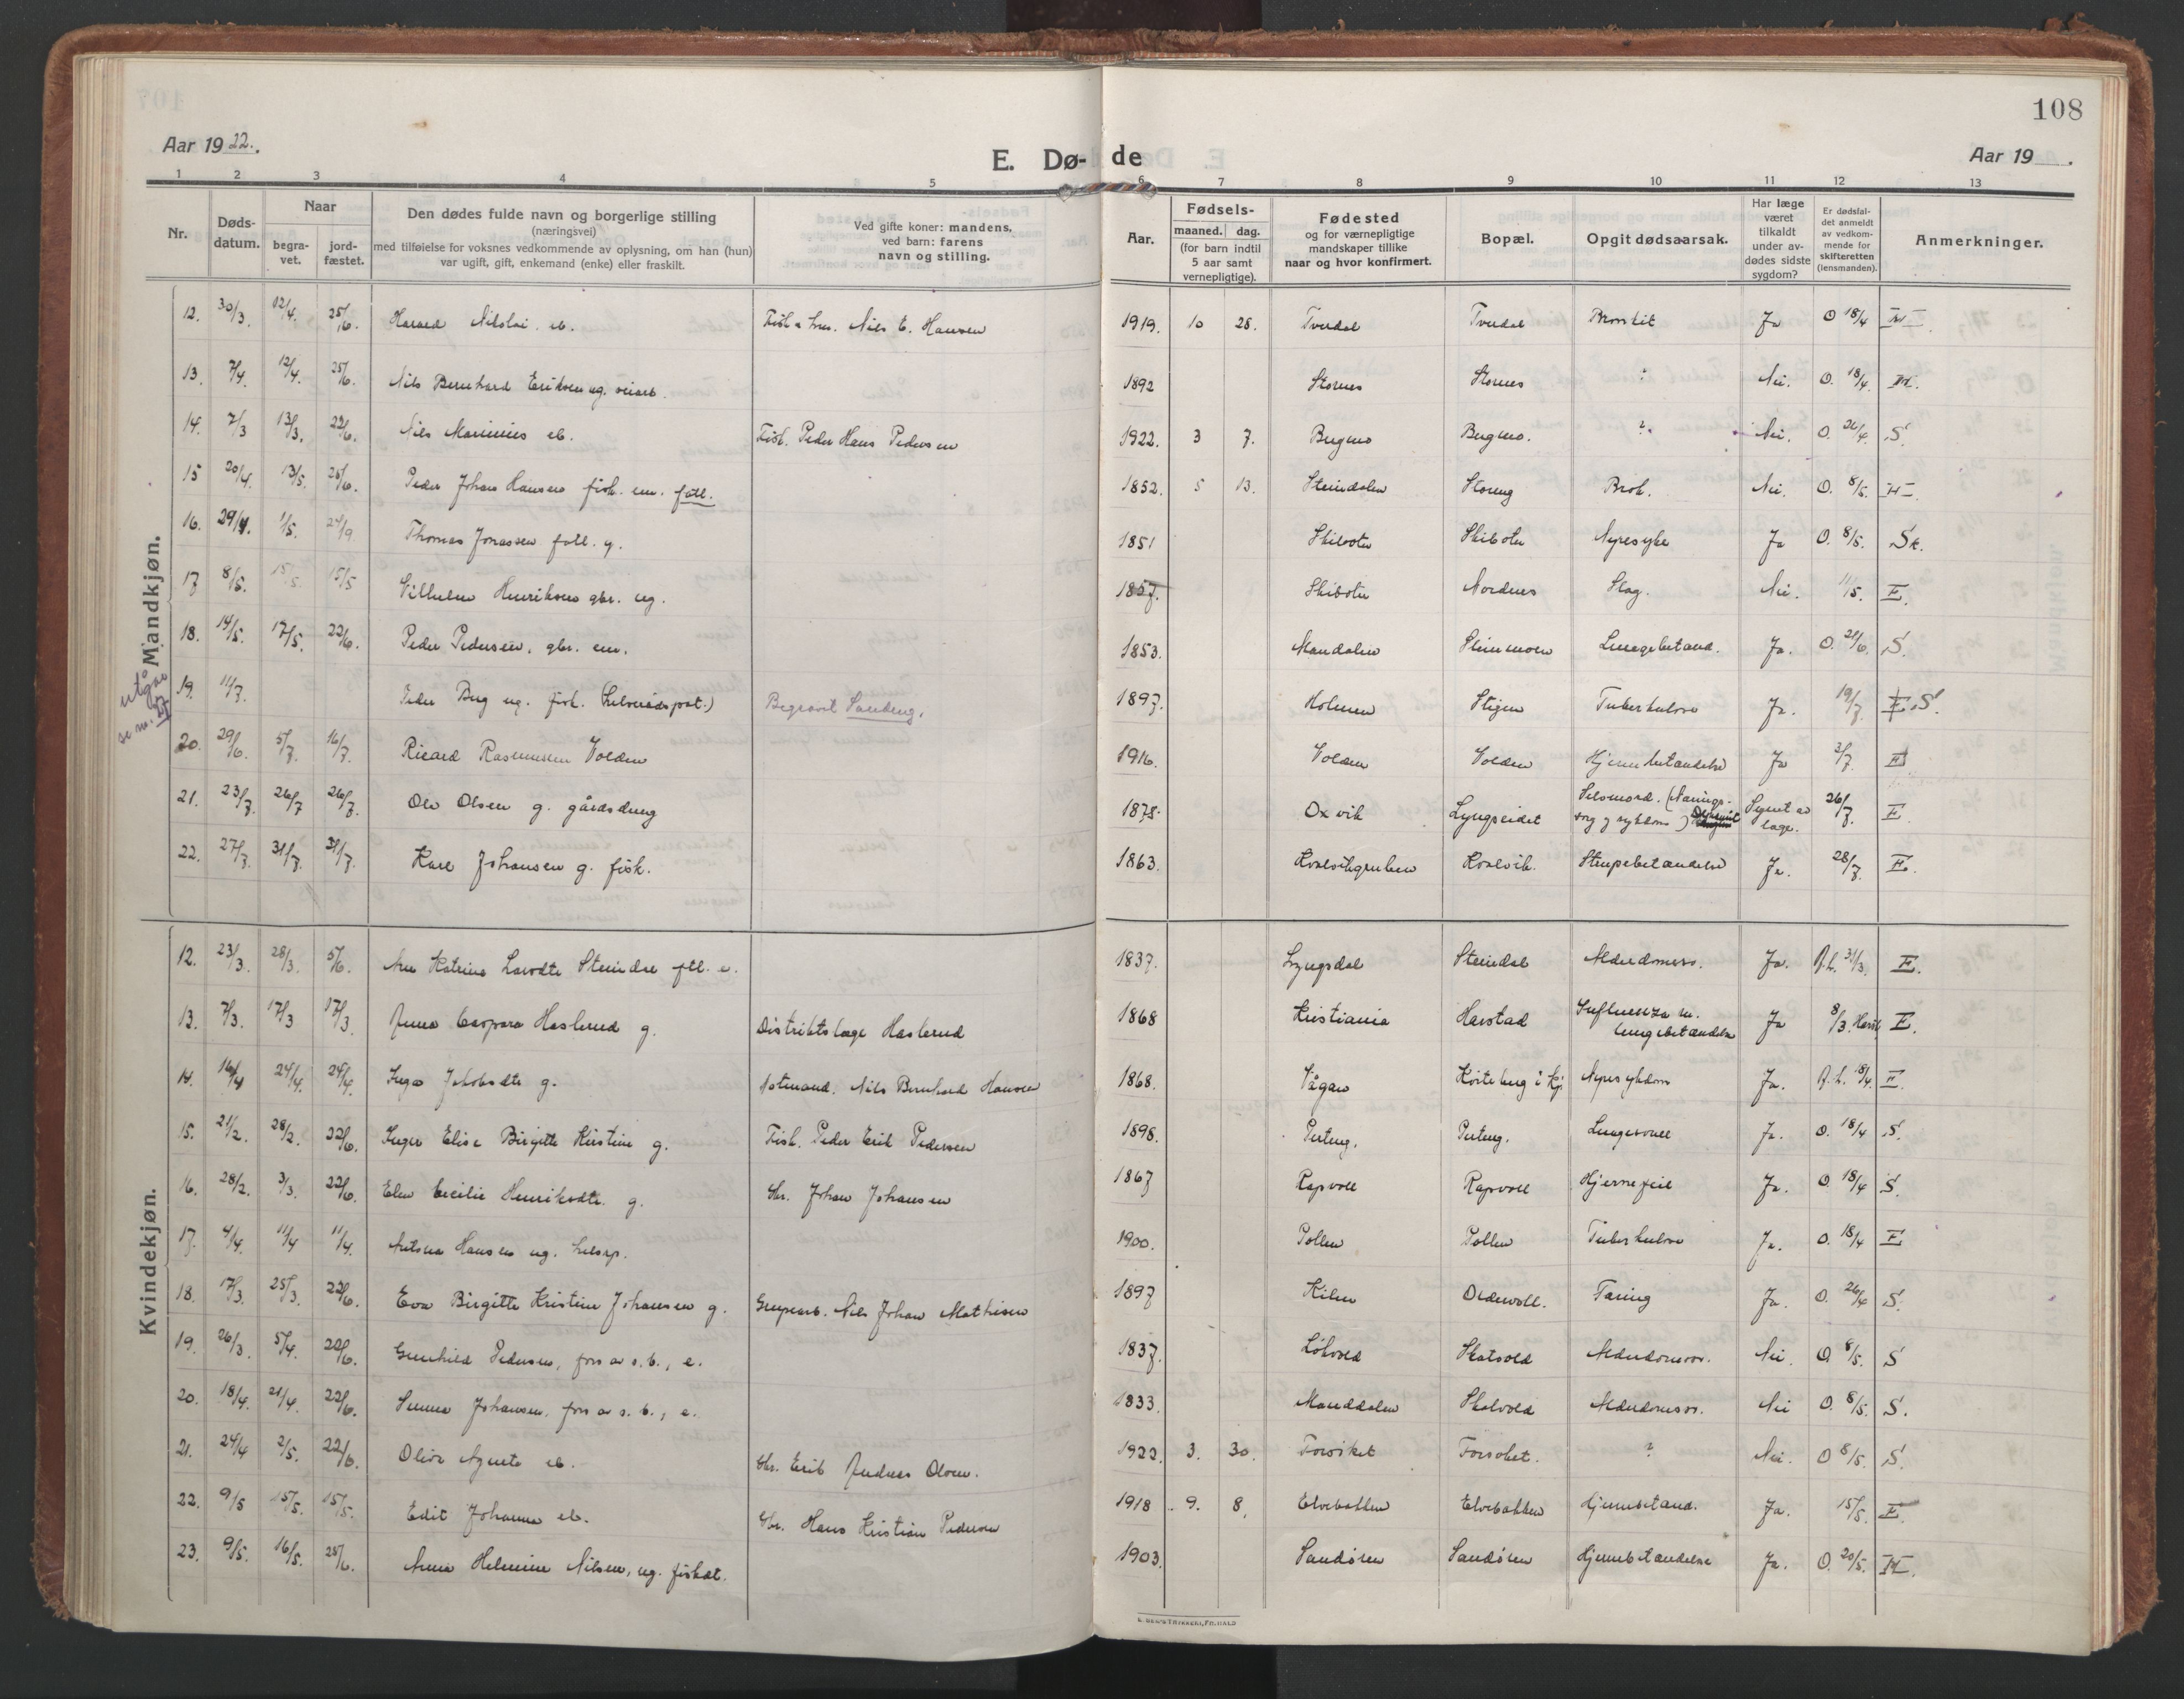 107
108
Aar 1922.
E. Dø-
de
Aar 19 .
1 2 3 4 5 6 7 8 9 10 11 12 13
Nr.
Døds-
datum.
Naar
begra-
vet.
jord-
fæstet.
Den dødes fulde navn og borgerlige stilling
(næringsvei)
med tilføielse for voksnes vedkommende av oplysning, om han (hun)
var ugift, gift, enkemand (enke) eller fraskilt.
Ved gifte koner: mandens,
ved barn: farens
navn og stilling.
Aar.
Fødsels-
maaned. dag.
(for barn indtil
5 aar samt
vernepligtige).
Fødested
og for værnepligtige
mandskaper tillike
naar og hvor konfirmert.
Bopæl.
Opgit dødsaarsak.
Har læge
været
tilkaldt
under av-
dødes sidste
sygdom?
Er dødsfal-
det anmeldt
av vedkom-
mende for
skifteretten
(lensmanden).
Anmerkninger.
Mandkjøn.
12. 30/3. 12/4. 25/6. Harald Nikolai. eb. Fisk. Nils E. Hansen 1919. 10 28. Tverdal Tverdal Bronkit Ja O 18/4
13. 7/4. 12/4. 25/6. Nils Bernhard Eriksen ug. veiarb. 1892 Stornes Stornes ? Nei. O. 18/4.
14. 7/3 13/3. 22/6. Nils Marinius eb. Fisk. Peder Hans Pedersen 1922. 3 7. Bugmo Bugmo. ? Nei. O. 26/4. S.
15 20/4. 13/5. 25/6. Peder Johan Hansen fisk. em. fatl. 1852. 5 13. Steindalen Storeng Brok. Nei. O. 8/5.
16. 29/4. 1/5. 24/9. Thomas Jonassen fatl. g. 1851 Skibotn Skibotn Nyresyke Ja O. 8/5. Sk.
17 8/5. 15/5. 15/5 Vilhelm Henriksen gbr. ug. 1857. Skibotn Nordnes Slag. Nei. 11/5. E.
18. 14/5. 17/5. 22/6. Peder Pedersen, gbr. em. 1853. Mandalen Steinmoen Lungebetænd. Ja. O. 21/6. S.
utgår
se nr. 27
19. 11/7. Peder Bug ug. fisk. Begravet Sandeng. 1897. Holmen Stigen Tuberkulose Ja. 19/7 E. S.
20. 29/6. 5/7. 16/7. Ricard Rasmussen Volden 1916. Volden Volden Hjernebetændelse Ja 3/7. E
21. 23/7. 26/7 26/7. Ole Olsen g. gårdsdreng 1878. Oxvik Lyngseidet Selvmord. (Nærings-
sorg og sykdom) Synet av
læge. 26/7. E
22. 27/7. 31/7. 31/7. Karl Johansen g. fisk. 1863. Kvalvikgrunden Kvalvik. Strupebetændelse Ja. 28/7. E.
Kvindekjøn.
12. 23/3. 28/3. 5/6. Ane Katrine Larsdtr Steindal ftl. e. 1837. Lyngsdal Steindal Alderdomssv. Ja. 31/3. E.
13. 7/3. 17/3 17/3. Anna Caspara Haslerud g. Distriktslæge Haslerud 1868 Kristiania Harstad Influenza m.
lungebetændelse Ja 8/3. Harst. E.
14. 16/4 24/4. 24/4. Inga Jakobsdtr g. Notmand. Nils Bernhard Hansen 1868. Vågan Nyresykdom Ja. 18/4. E.
15. 21/2. 28/2. 22/6. Inger Elise Birgitte Kristine g. Fisk. Peder Erik Pedersen 1898. Ja. O. 18/4 S.
16. 28/2. 3/3. 22/6. Elen Cecilie Henriksdtr. g. Gbr. Johan Johansen 1867 Rapvoll Rapvoll Hjernefeil Ja. O. 18/4 S.
17. 4/4. 11/4 11/4. Hansen ug. 1900. Pollen Pollen Tuberkulose Ja. O. 18/4 E
18. 17/3. 25/3. 22/6. Eva Birgitte Kristine Johansen g. Grubearb. Nils Johan Mathisen 1897 Kilen Oldervoll. Tæring Ja. O. 26/4 S.
19. 26/3. 5/4. 22/6. Gunhild Pedersen, fors av s. b., e. 1837. Løkvold Skatvold Alderdomssv. Nei. O 8/5. S
20. 18/4. 21/4. 22/6. Johansen. fors av s. b., e. 1833. Manddalen Skatvold Alderdomssv. Nei O. 8/5. S.
21. 24/4 2/5. 22/6. Olive Agnete eb. Gbr. Erik Andreas Olsen. 1922. 3. 30. ? Nei. O 8/5. S.
22. 9/5 15/5. 15/5. Edit Johanna eb. Gbr. Hans Kristian Pedersen 1918 9. 8. Elvebakken Elvebakken Hjernebetænd. Ja. 15/5. E.
23. 9/5. 16/5. 25/6. Anna Helmine Nilsen, ug. fiskdt. 1903. Sandøren Sandøren Hjernebetændelse Ja. O. 20/5.